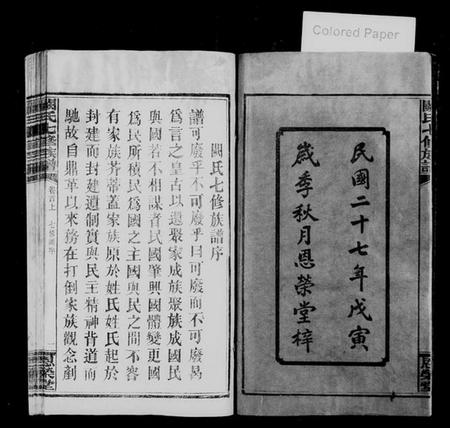 Colored Paper
闕氏七修族譜
民國二十七年戊寅
歲季秋月恩榮堂梓
闕氏七修族譜序
譜可廢乎不可廢乎曰可廢而不可廢曷
為言之皇古以還聚家成族聚族成國民
與國若不相謀者民國肇興國體變更國
為民所積民為國之主國與民之間不容
有家族芥蒂蓋家族原於姓氏姓氏起於
封建而封建遺制實與民主精神背道而
馳故自鼎革以來務在打倒家族觀念剷
闕氏七修族譜
卷首上
七修譜序
恩榮堂